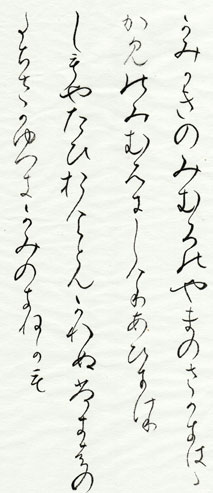 かみかきのみむろのやまのさかきはは
かみのみまへにしけりあひにけり
しもやたひおけとかれせぬさかきはの
たちさかゆへきかみのきねかも